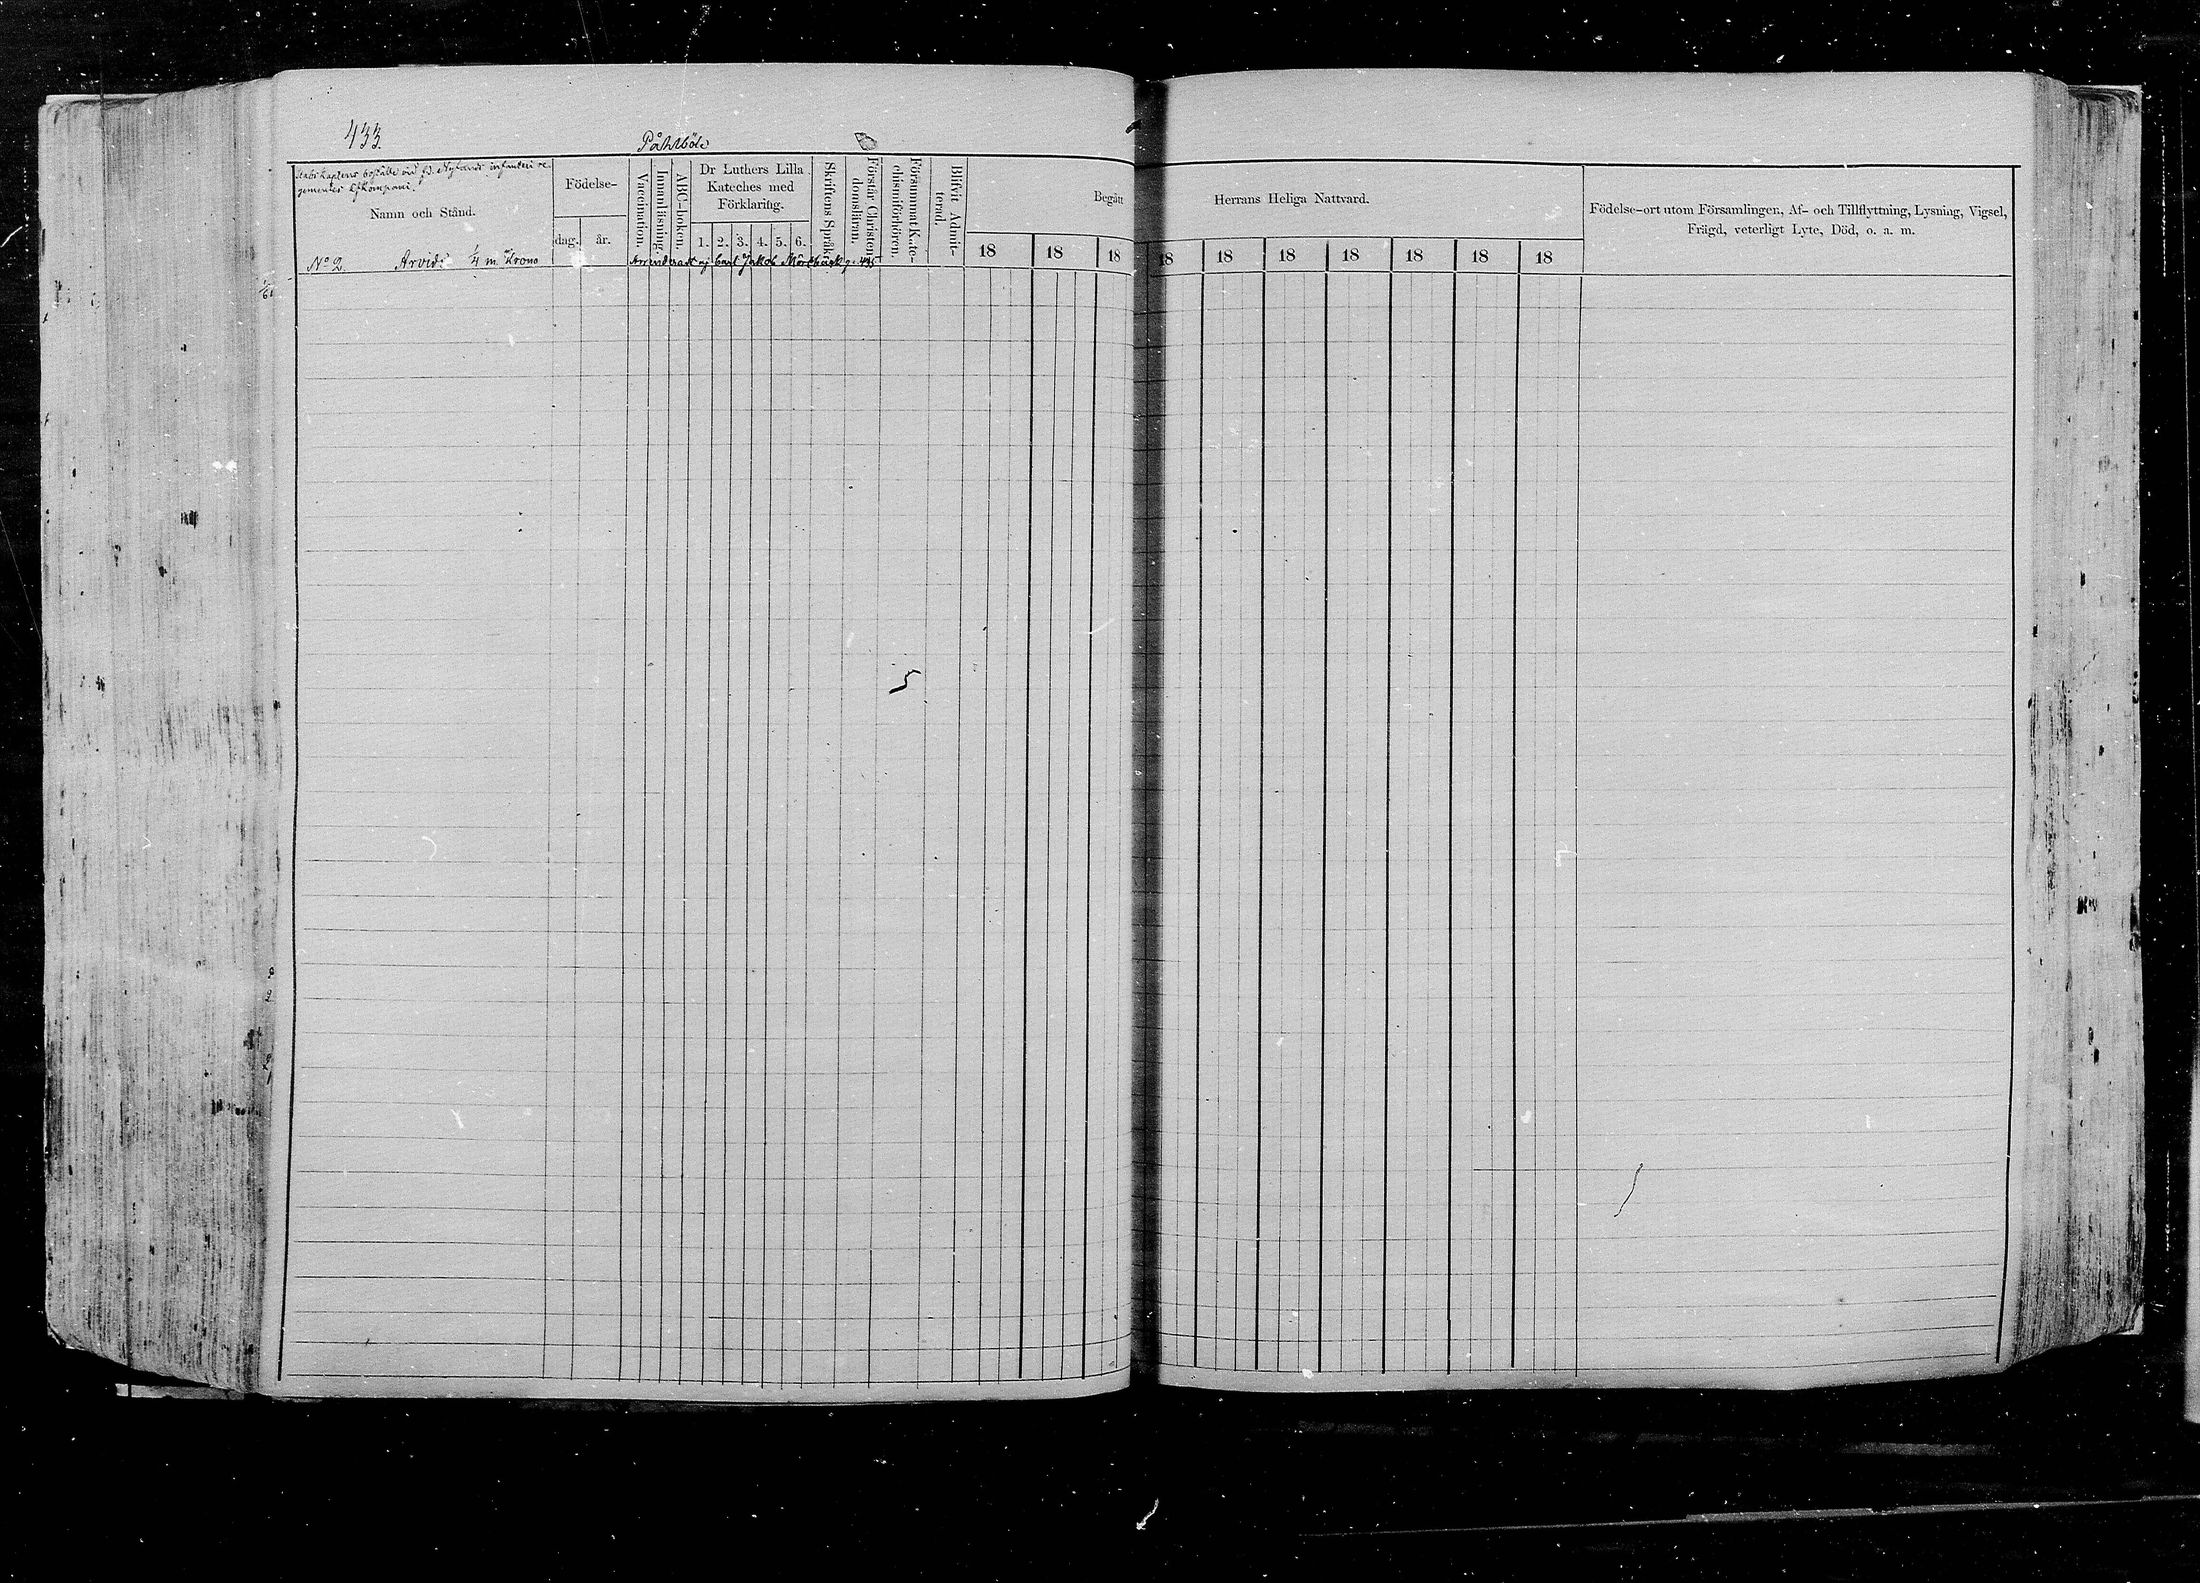 433.
Påhlböle
Stabs kaptens boställe vid f.d. Nylands infanteri re-
gementes Lifkompani.
Namn och Stånd.
Födelse-
dag.
år.
Vaccination.
Innanläsning.
ABC-boken.
Dr Luthers Lilla
Kateches med
Förklaring.
1. 2. 3. 4. 5. 6.
Skriftens Språk.
Förstår Christen-
domsläran.
Försummat Kate-
chismiförhören.
Blifvit Admit-
terad.
Begått
Herrans Heliga Nattvard.
18 18 18 18 18 18 18 18 18 18
Födelse-ort utom Församlingen, Af- och Tillflyttning, Lysning, Vigsel,
Frägd, veterligt Lyte, Död, o. a. m.
No 2. Arvids 1/4 m. Krono Arrenderadt af Carl Jakob Mörtbäck